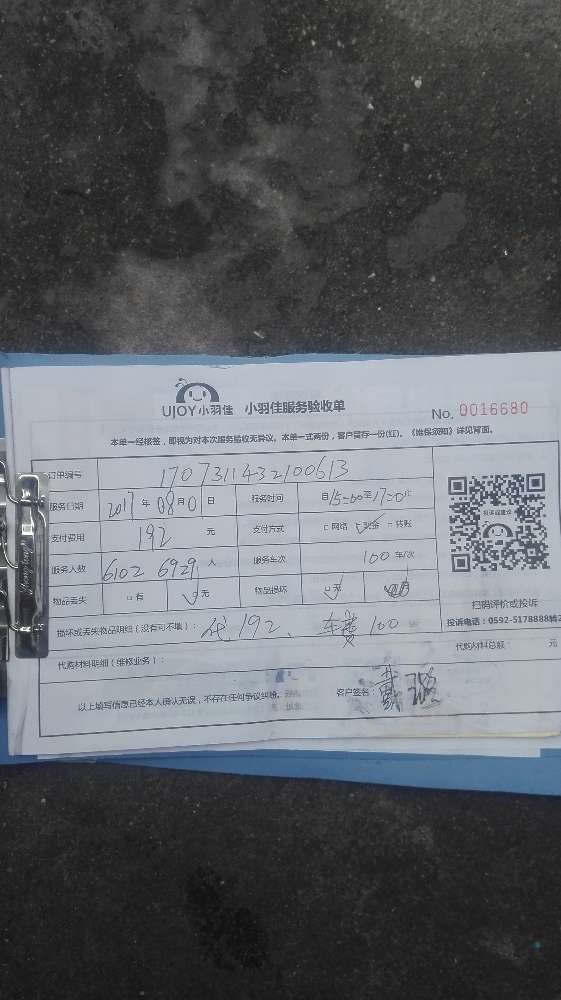 UJOY小羽佳 小羽佳服务验收单
No. 0016680
本单一经核签，即视为对本次服务验收无异议。本单一式两份，客户留存一份(红)。《维保须知》详见背面。
订单编号 1707311432100613
服务日期 2017年08月01日 服务时间 自15:00至17:01
支付费用 192 元 支付方式 □网络 ☑现金 □转账
服务人数 6102 6929 人 服务车次 100车/次
物品丢失 □有 ☑无 物品损坏
扫码评价或投诉
投诉电话：0592-5178888转2
损坏或丢失物品明细（没有可不填）： 192、 100
代购材料明细（维修业务）： 代购材料总额： 元
以上填写信息已经本人确认无误，不存在任何争议纠纷。 客户签名：戴璐